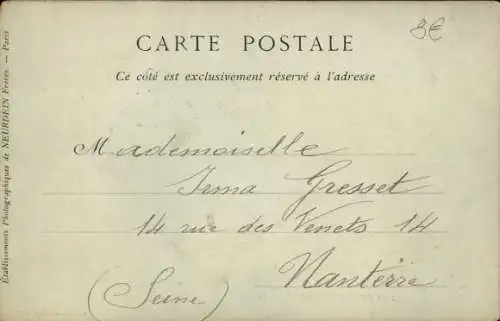 8€
CARTE POSTALE
Ce côté est exclusivement réservé à l'adresse
Etablissements Photographiques de NEURDEIN Frères. — Paris
Mademoiselle
Irma Gresset
14 rue des Venets 14
Nanterre
(Seine)